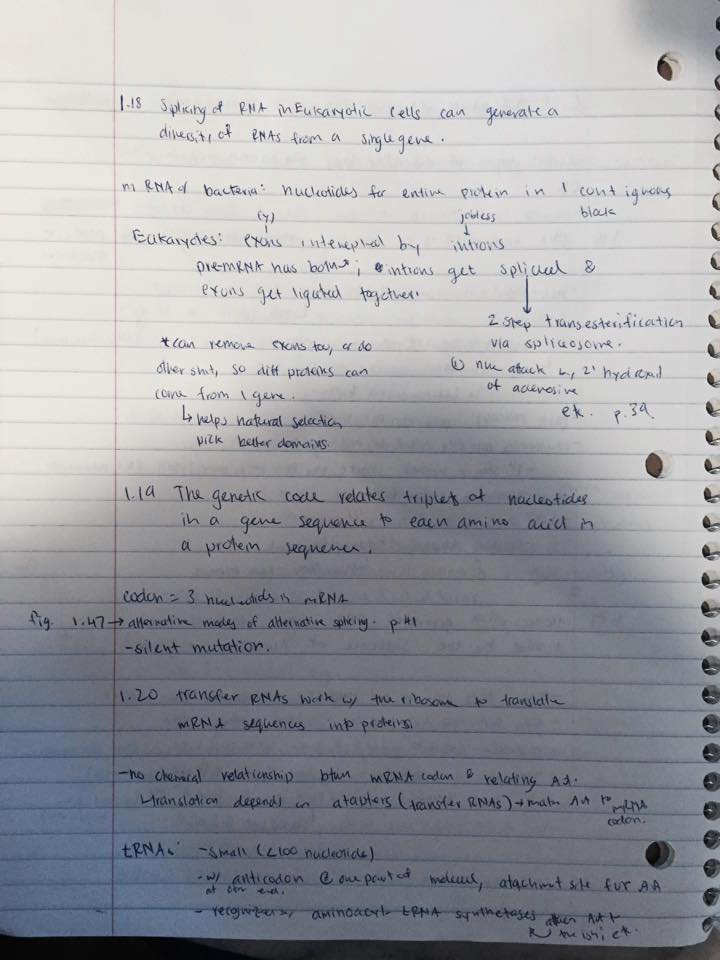 1.18 Splicing of RNA in Eukaryotic Cells can generate a
diversity of RNAs from a single gene.
mRNA of bacteria: nucleotides for entire protein in 1 contiguous
block
jobless
Eukaryotes: exons interrupted by introns
pre-mRNA has both; introns get spliced &
exons get ligated together.
2 step transesterification
via spliceosome.
*can remove exons too, or do
other shit, so diff proteins can
come from 1 gene.
① nuc attack by 2' hydroxyl
of adenosine
etc. p.39
↳ helps natural selection
pick better domains.
1.19 The genetic code relates triplets of nucleotides
in a gene sequence to each amino acid in
a protein sequence.
codon = 3 nucleotids in mRNA
fig. 1.47 → alternative modes of alternative splicing. p.41
-silent mutation.
1.20 transfer RNAs work w/ the ribosome to translate
mRNA sequences into proteins.
-no chemical relationship btwn mRNA codon & relating AA.
↳translation depends on adapters (transfer RNAs) → match AA to
mRNA
codon.
tRNAs: -small (<100 nucleotide)
-w/ anticodon @ one part of molecule, attachment site for AA
at other end.
- recognized by aminoacyl tRNA synthetases attach AA
etc.